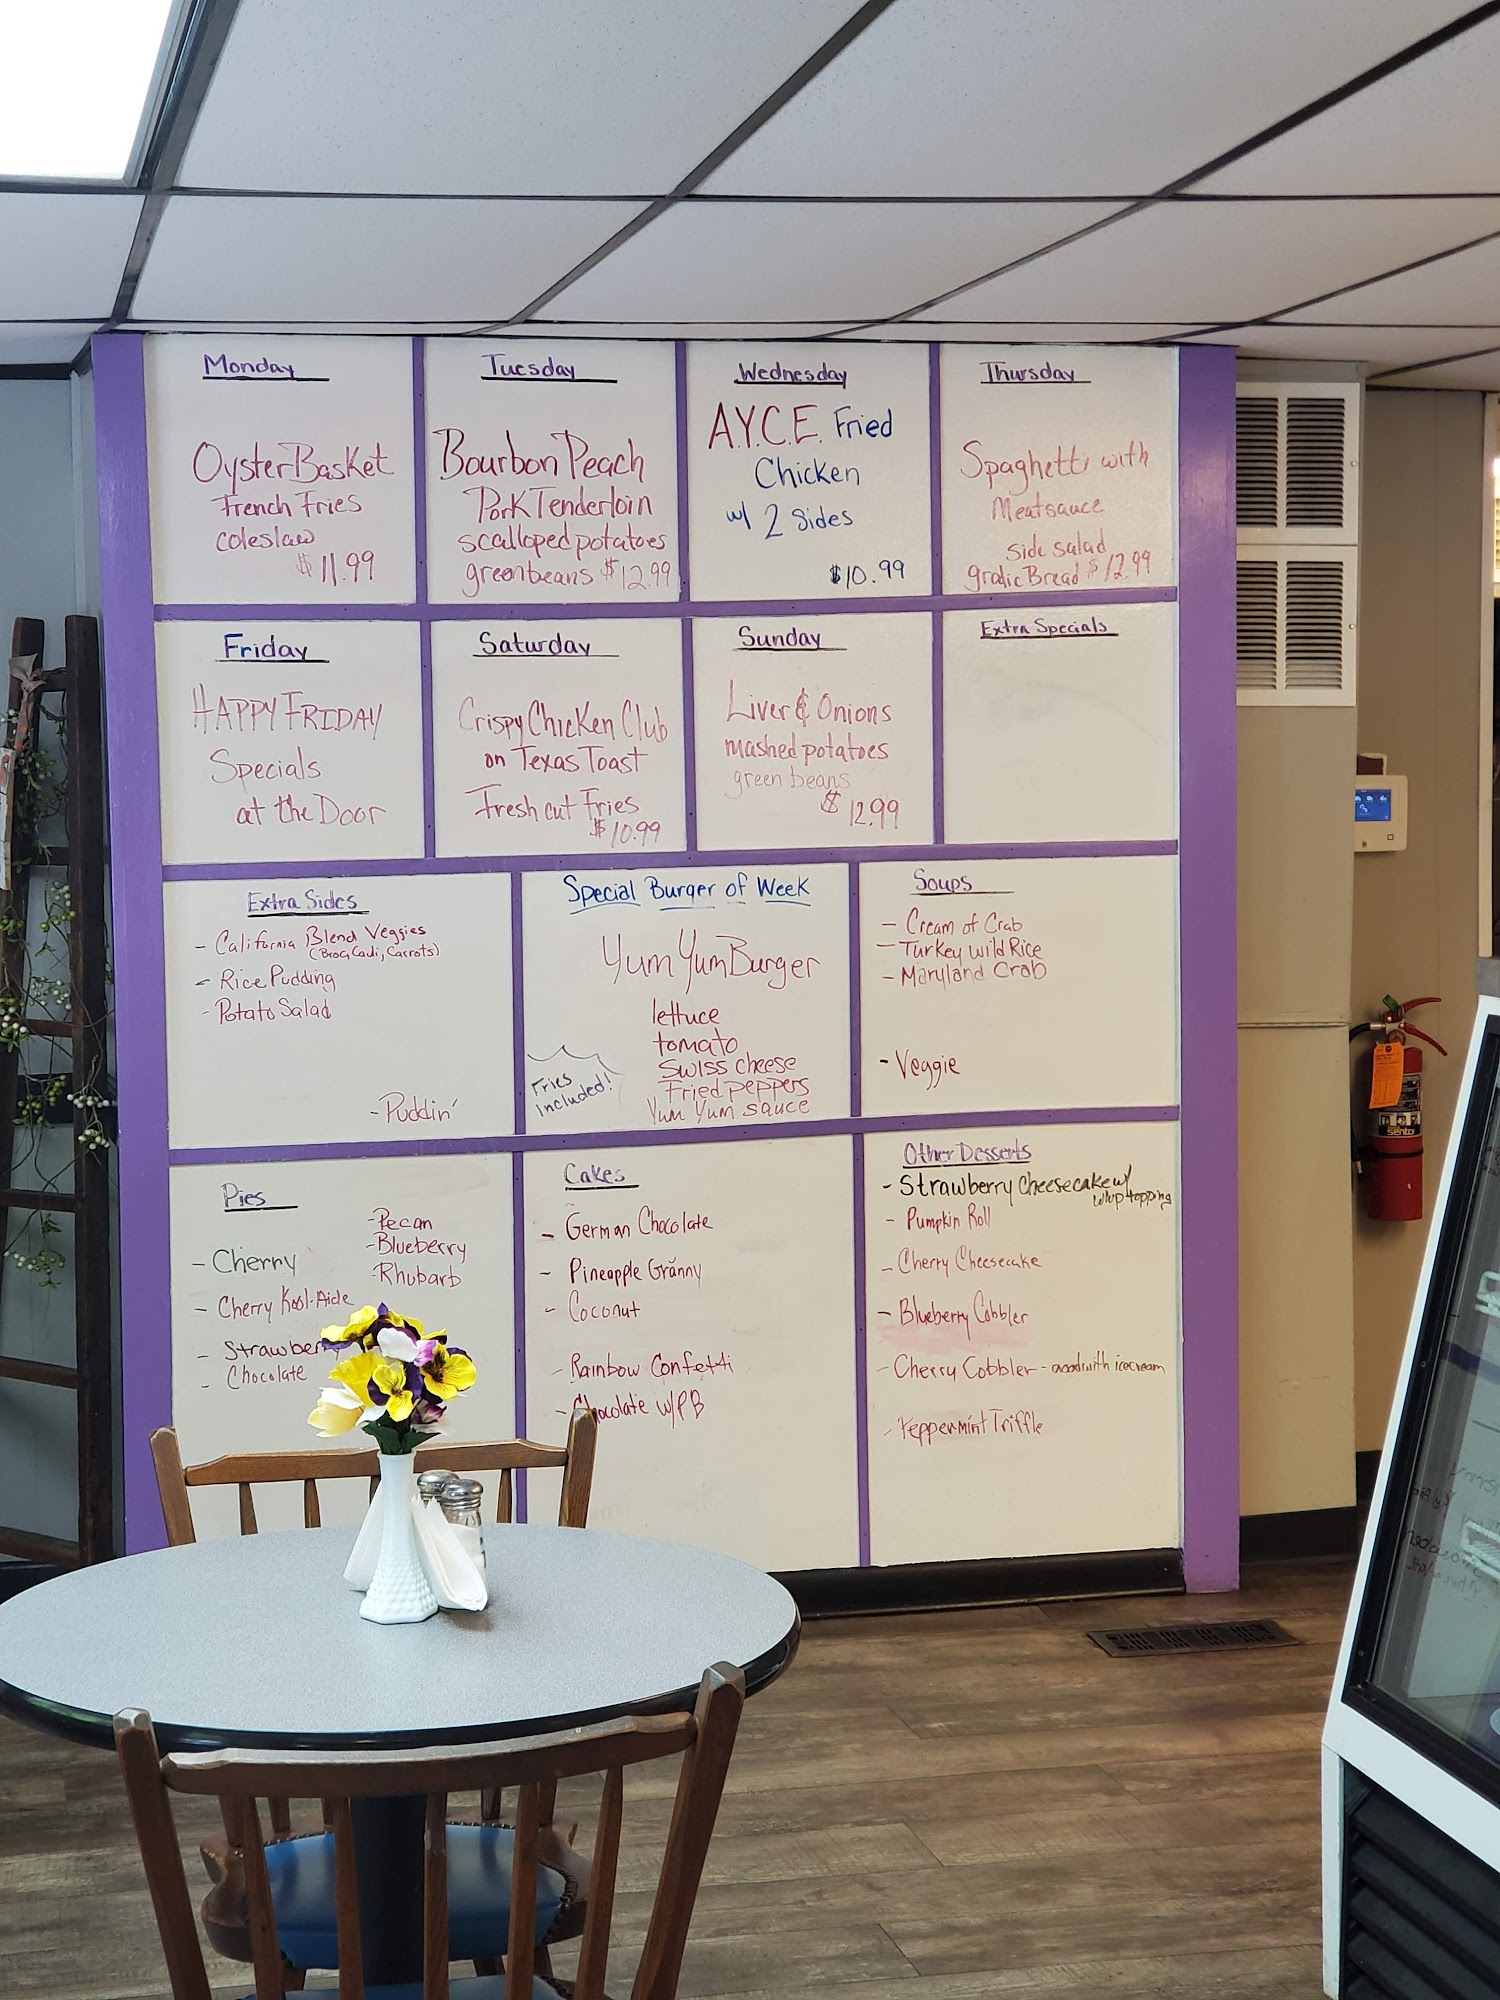 Monday
Oyster Basket
French Fries
coleslaw
$11.99
Tuesday
Bourbon Peach
Pork Tenderloin
scalloped potatoes
green beans $12.99
Wednesday
A.Y.C.E. Fried
Chicken
w/ 2 Sides
$10.99
Thursday
Spaghetti with
Meatsauce
side salad
gralic Bread $12.99
Friday
HAPPY FRIDAY
Specials
at the Door
Saturday
Crispy Chicken Club
on Texas Toast
Fresh cut Fries
$10.99
Sunday
Liver & Onions
mashed potatoes
green beans
$12.99
Extra Specials
Extra Sides
- California Blend Veggies
(Broc, Cauli, Carrots)
- Rice Pudding
- Potato Salad
- Puddin'
Special Burger of Week
Yum Yum Burger
lettuce
tomato
Swiss cheese
Fried peppers
Yum Yum sauce
Fries
Included!
Soups
- Cream of Crab
- Turkey Wild Rice
- Maryland Crab
- Veggie
Pies
- Pecan
- Blueberry
- Rhubarb
- Cherry
- Cherry Kool-Aide
- Strawber
- Chocolate
Cakes
- German Chocolate
- Pineapple Granny
- Coconut
- Rainbow Confetti
- Chocolate w/PB
Other Desserts
- Strawberry Cheesecake w/
topping
- Pumpkin Roll
- Cherry Cheesecake
- Blueberry Cobbler
- Cherry Cobbler - good with icecream
- Peppermint Triffle